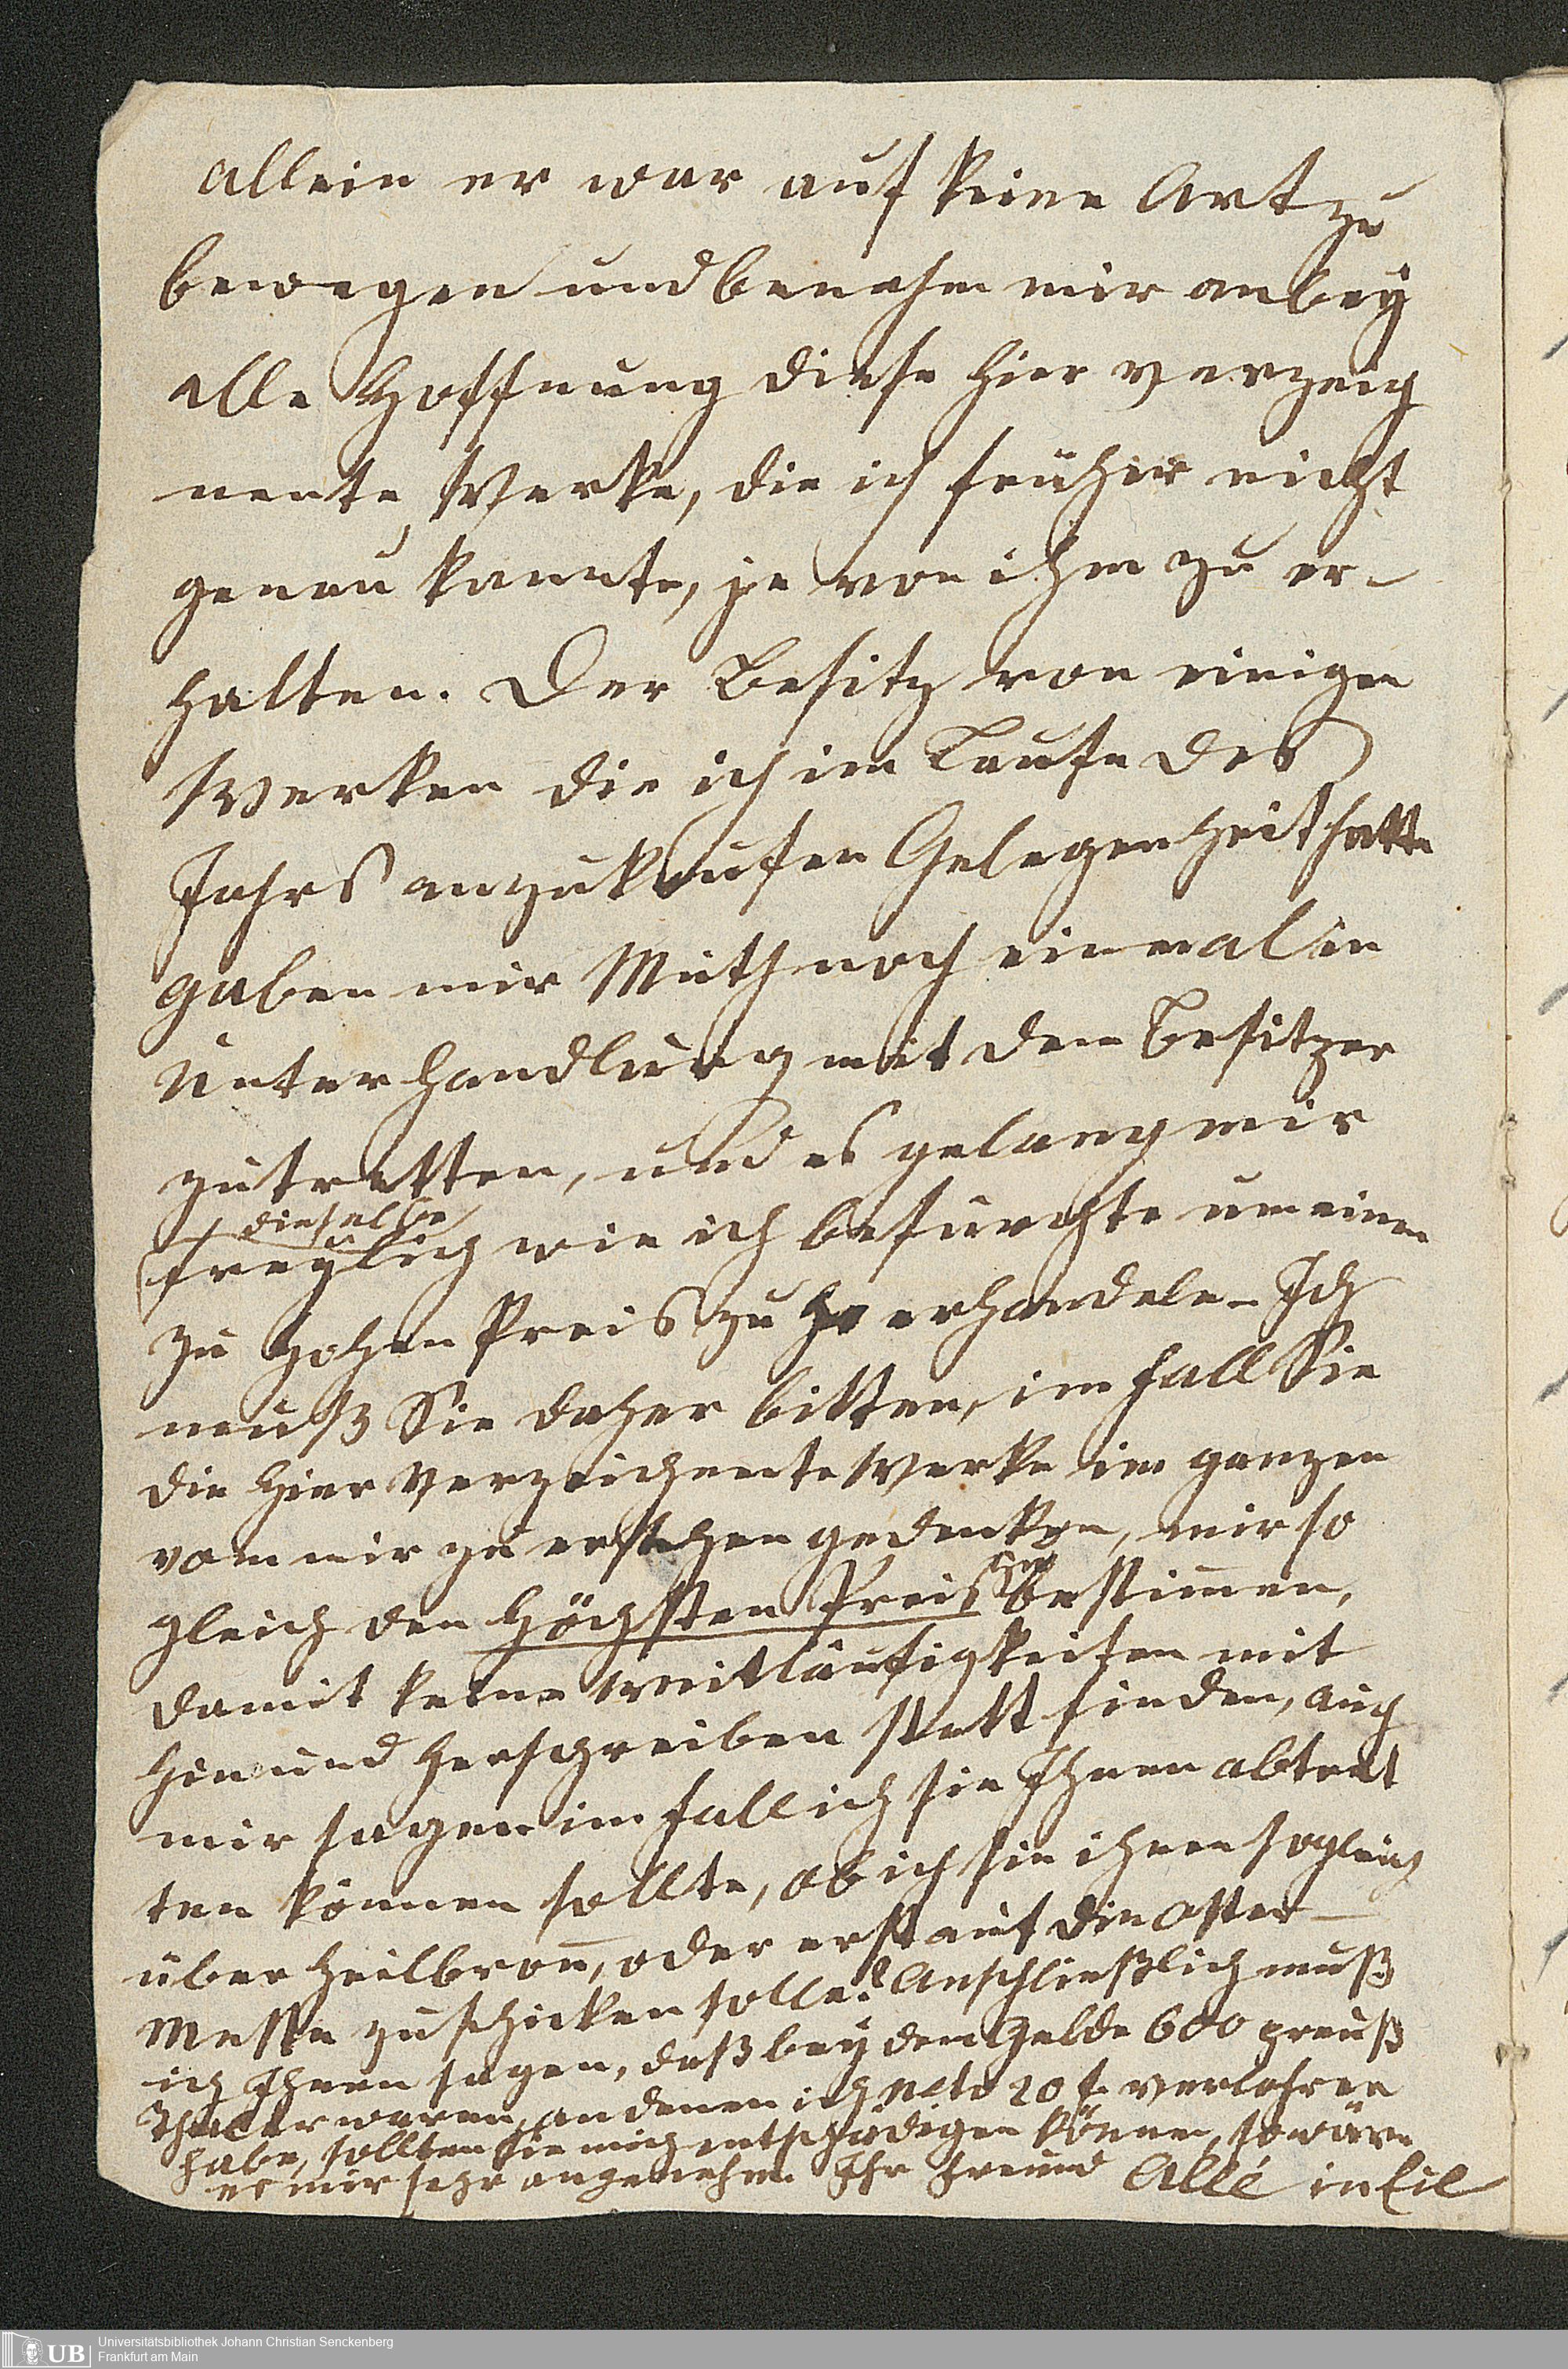 allein er war auf keine Art zu
bewegen und benahm mir anbey
alle Hoffnung diese hier verzeig
nente Werke, die ich früher nicht
genau kannte, je von ihm zu er-
halten. Der Besitz von einigen
Werken die ich im Laufe des
Jahrs anzukaufen Gelegenheit hatte
gaben mir Muth noch einmal in
Unterhandlung mit dem Besitzer
zu tretten, und es gelang mir
dieselbe
freylich wie ich befürchte um einen
zu hohen Preis zu erhandeln - Ich
muß Sie daher bitten, im Fall Sie
die hier verzeichente Werke im ganzen
vom mir zu erstehen gedenken, mir so
gleich den höchsten Preis zu bestimen,
damit keine Weitläufigkeiten mit
hin und herschreiben statt finden, auch
mir sagen im fall ich sie Ihnen abtret
ten können sollte, ob ich sie ihnen sogleich
über Heilbron, oder erst auf die Oster-
Messe zuschicken solle? Anschließlich muß
ich Ihnen sagen, daß bey dem Gelde 600 preuß
Thaler waren, an denen ich netto 20 f. verlohren
habe, sollten sie mich entschädigen können, so wäre
es mir sehr angenehm. Ihr Freund Allé in Eil
UB
Universitätsbibliothek Johann Christian Senckenberg
Frankfurt am Main